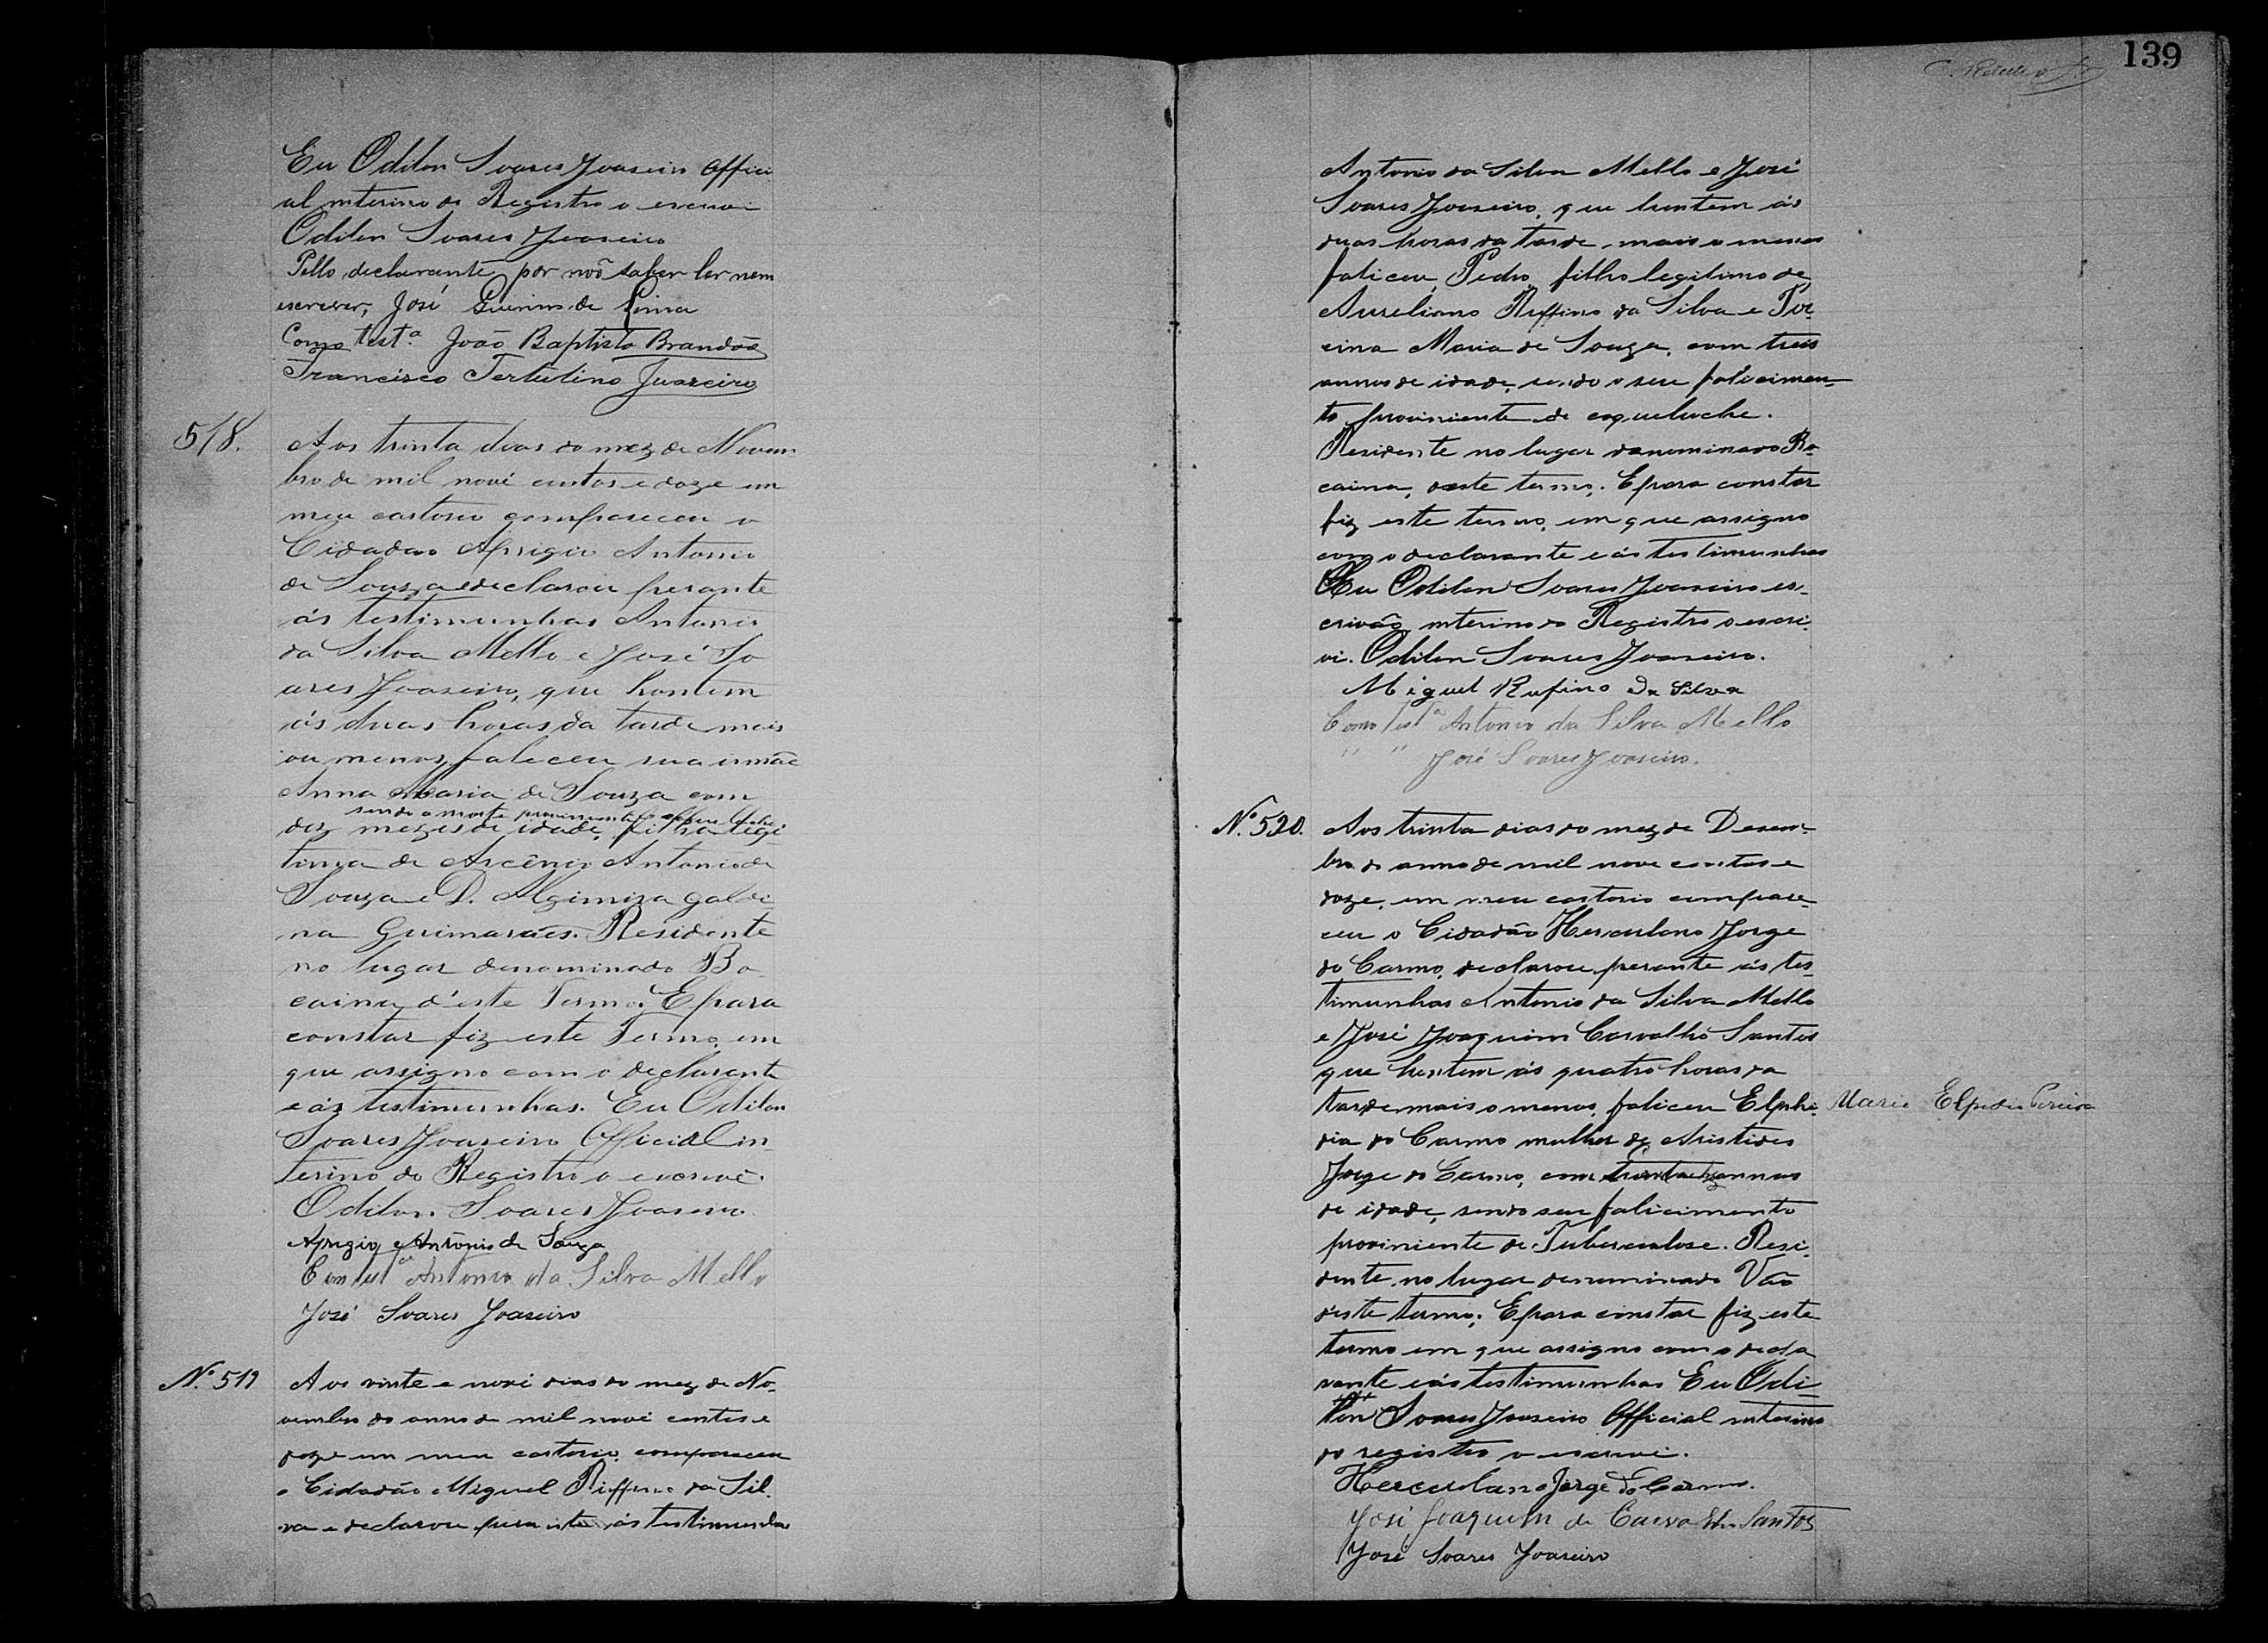 Eu Odilon Soares Joaseiro Offici
al interino do Registro o escrevi
Odilon Soares Joaseiro
Pello declarante, por não saber ler nem
escrever, José Guerino de Lima
Como testª João Baptista Brandão
Francisco Tertulino Juazeiro
518. Aos trinta dias do mez de Novem
bro de mil nové centos e doze em
meu cartorio compareceu o
Cidadão Aprigio Antonio
de Souza e declarou perante
ás testimunhas Antonio
da Silva Mello e José So
ares Joaseiro, que hontem
ás duas horas da tarde mais
ou menos, faliceu sua irmãe
Anna Maria de Souza com
sendo a morte proviniente
dez mezes de idade, filha legi
tima de Ascêncio Antonio de
Souza e D. Algimira Galdi
na Guimarães. Residente
no lugar denominado Bo
caina d'este Termo. E para
constar fiz este Termo, em
que assigno com o declarante
e ás testimunhas. Eu Odilon
Soares Joaseiro Official in-
terino do Registro o escrevi.
Odilon Soares Joaseiro
Aprigio Antonio de Souza
Com testª Antonio da Silva Mello
José Soares Joaseiro
N.º 519 Aos vinte e nové dias do mez de No-
vembro do anno de mil nové centos e
doze em meu cartorio, compareceu
o Cidadão Miguel Ruffino da Sil-
va e declarou perante ás testimunhas
139
Antonio da Silva Mello e José
Soares Joaseiro, que hontem ás
duas horas da tarde, mais o menos
faliceu, Pedro, filho legitimo de
Aureliano Ruffino da Silva e
cina Maria de Souza, com tres
annos de idade, sendo o seu falicimen-
to proviniente de coqueluche.
Residente no lugar denominado Bo-
caina, deste termo. E para constar
fiz este termo, em que assigno
com o declarante e ás testimunhas
Eu Odilon Soares Joaseiro es-
crivão interino do Registro o escri-
vi. Odilon Soares Joaseiro.
Miguel Rufino da Silva
Como testª Antonio da Silva Mello
" " José Soares Joaseiro.
N.º 520. Aos trinta dias do mez de Desem-
bro do anno de mil nove centos e
doze, em meu cartorio compare-
ceu o Cidadão Herculano Jorge
do Carmo, declarou perante ás tes-
timunhas Antonio da Silva Mello
e José Joaquim Carvalho Santos
que hontem ás quatro horas da
tarde mais o menos, faliceu Elphi- Maria Elpidia Pereira
dia do Carmo mulher de Aristides
Jorge do Carmo, com trinta annos
de idade, sendo seu falicimento
proviniente de Tuberculose. Resi-
dente no lugar denominado Vão
d'este termo. E para constar fiz este
termo em que assigno com o decla
rante e ás testimunhas Eu Odi-
lon Soares Joaseiro Official interino
do registro o escrevi.
Herculano Jorge do Carmo.
José Joaquim de Carvalho Santos
José Soares Joaseiro